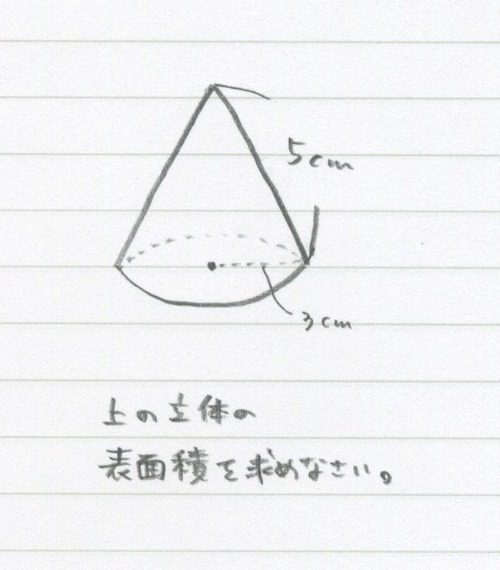 5cm
3cm
上の立体の
表面積を求めなさい。